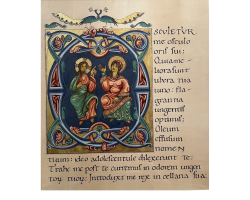 SCVLETVR
me osculo
oris sui:
Quia me-
liora sunt
ubera tua
uino: fla-
grantia
unguentis
optimis:
Oleum
effusum
nomen
tuum: ideo adolescentule dilexerunt te:
Trahe me post te curremus in odorem unguen
toru tuoru: Introduxit me rex in cellaria sua: